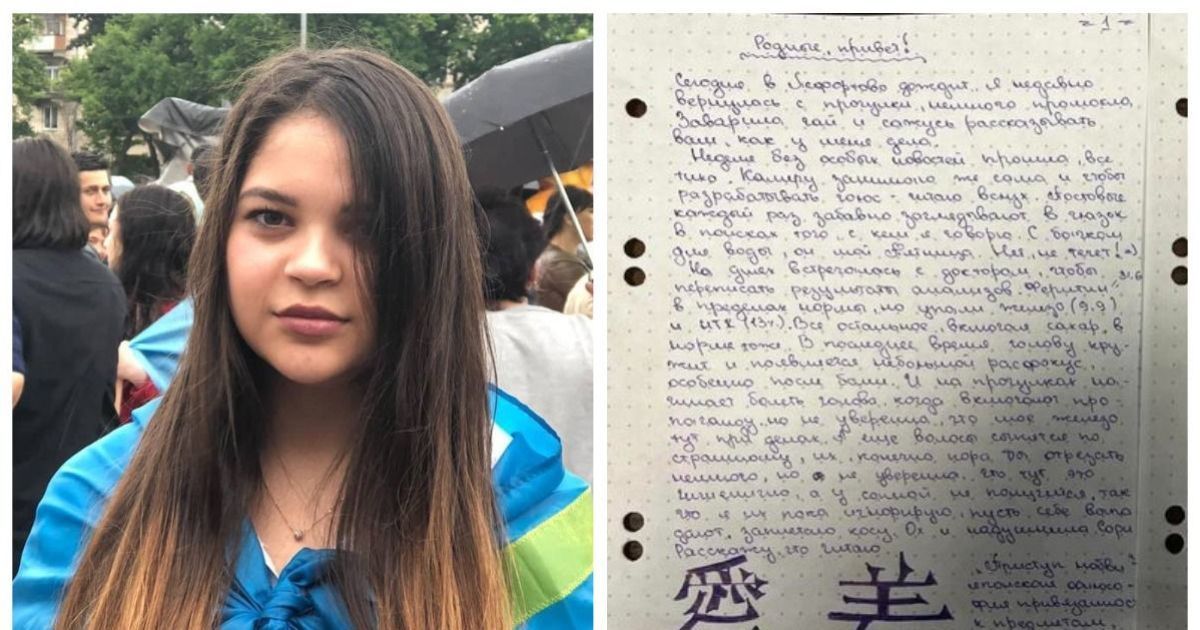 = 1 =
Родные, привет!
Сегодня в Лефортово дождит. Я недавно
вернулась с прогулки, немного промокла,
Заварила чай и сажусь рассказывать
вам, как у меня дела.
Неделя без особых новостей прошла, все
тихо Камеру занимаю же сама и чтобы
разрабатывать голос - читаю вслух.
каждый раз забавно заглядывают в глазок
в поисках того, с кем я говорю. С бачком
для воды, он мой Пятница. Нет, не течет! =)
На днях встречалась с доктором, чтобы
переписать результаты анализов. Ферритин = 31.6
в пределах нормы, но упали железо (9.9)
и НТЖ (13%). Все остальное, включая сахар, в
норме тоже. В последнее время голову кру-
жит и появляется небольшой расфокус,
особенно после бани. И на прогулках на-
чинает болеть голова, когда включают про-
паганду, но не уверена, что мое железо
тут при делах. А еще волосы сыпятся по
страшному, их, конечно, пора бы отрезать
немного, но не уверена, что тут это
гигиенично, а у самой не получится, так
что я их пока игнорирую, пусть себе выпа-
дают, заплетаю косу. Ох и надушнила, Сори
Расскажу, что читаю.
愛 美
японская
привязанност
к предметам,